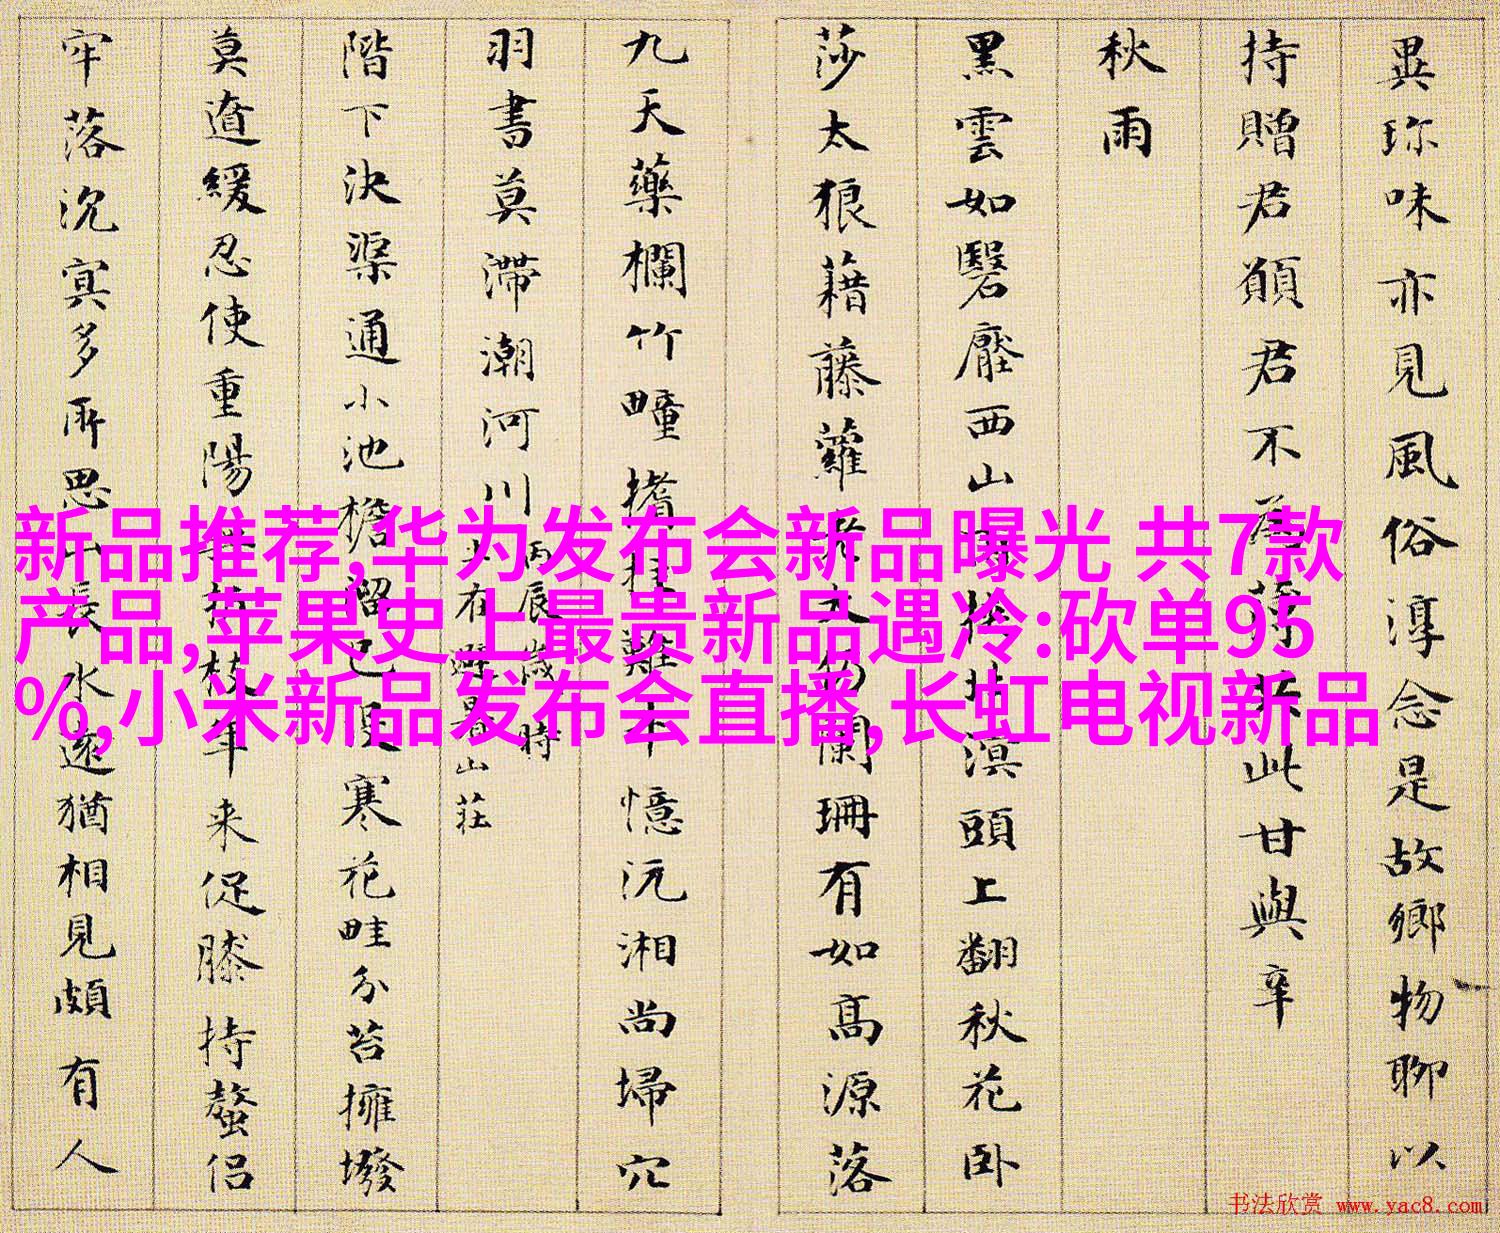 異珎味亦見風俗淳念是故鄉物聊以
持贈君願君不
此甘與辛
秋雨
黑雲如鬒壓西山
溟頭上翻秋花卧
莎太狼藉藤蘿
闌珊有如高源落
九天藥欄竹疃
憶沅湘尚埽穴
羽書莫滯潮河川
丙辰歲
時
山莊
階下決渠通小池檐溜已
寒花畦分苔擁撥
莫遣緩忍使重陽
年来促膝持螯侣
牢落沉冥多所思山長水遠猶相見頗有人
新品推荐,华为发布会新品曝光 共7款
产品,苹果史上最贵新品遇冷:砍单95
%,小米新品发布会直播,长虹电视新品
书法欣赏 www.yac8.com